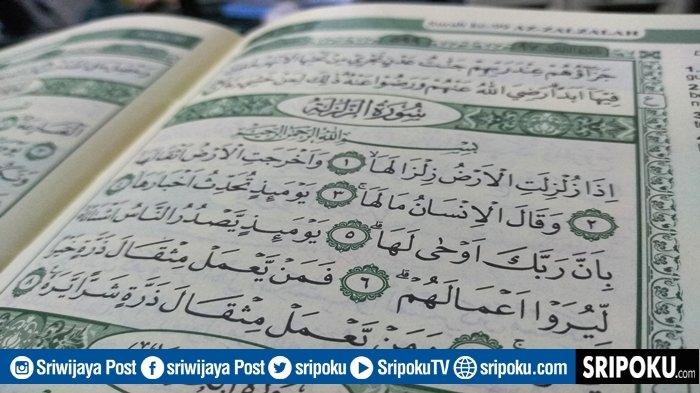 Surah ke-99 AZ-ZALZALAH
جَزَاۤؤُهُمْ عِنْدَ رَبِّهِمْ جَنّٰتُ عَدْنٍ تَجْرِيْ مِنْ تَحْتِهَا
فِيْهَآ اَبَدًا ۗرَضِيَ اللّٰهُ عَنْهُمْ وَرَضُوْا عَنْهُ ۗ ذٰلِكَ لِمَنْ خَشِيَ
سُوْرَةُ الزَّلْزَلَةِ
بِسْمِ اللّٰهِ الرَّحْمٰنِ الرَّحِيْمِ
اِذَا زُلْزِلَتِ الْاَرْضُ زِلْزَالَهَاۙ ١ وَاَخْرَجَتِ الْاَرْضُ اَثْقَالَهَاۙ
٢ وَقَالَ الْاِنْسَانُ مَا لَهَاۚ ٣ يَوْمَىِٕذٍ تُحَدِّثُ اَخْبَارَهَاۙ ٤
بِاَنَّ رَبَّكَ اَوْحٰى لَهَاۗ ٥ يَوْمَىِٕذٍ يَّصْدُرُ النَّاسُ اَشْتَاتًا
لِّيُرَوْا اَعْمَالَهُمْۗ ٦ فَمَنْ يَّعْمَلْ مِثْقَالَ ذَرَّةٍ خَيْرًا
وَمَنْ يَّعْمَلْ مِثْقَالَ ذَرَّةٍ شَرًّا يَّرَهٗ ٨
Sriwijaya Post sriwijaya Post sripoku SripokuTV sripoku.com SRIPOKU.com